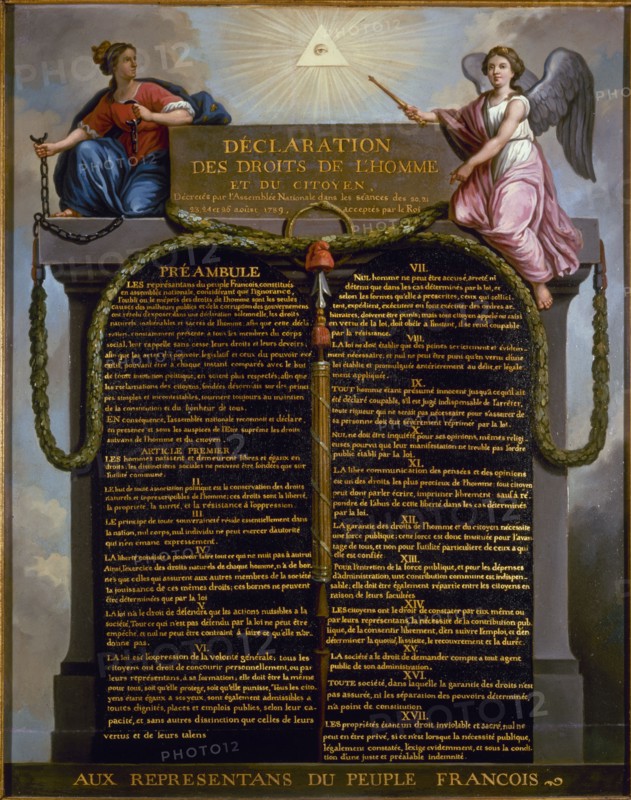 DÉCLARATION
DES DROITS DE L'HOMME
ET DU CITOYEN,
Décretés par l'Assemblée Nationale dans les séances des 20, 21
23, 24 et 26 août 1789, acceptés par le Roi
PRÉAMBULE
LES représentans du peuple François, constitués
en assemblée nationale, considérant que l'ignorance,
l'oubli ou le mépris des droits de l'homme sont les seules
causes des malheurs publics et de la corruption des gouvernemens
ont résolu d'exposer dans une déclaration solemnelle, les droits
naturels, inaliénables et sacrés de l'homme, afin que cette décla-
ration, constamment présente a tous les membres du corps
social, leur rappelle sans cesse leurs droits et leurs devoirs,
afin que les actes du pouvoir législatif et ceux du pouvoir exé-
cutif, pouvant être à chaque instant comparés avec le but
de toute institution politique, en soient plus respectés; afin que
les réclamations des citoyens, fondées désormais sur des princi-
pes simples et incontestables, tournent toujours au maintien
de la constitution et du bonheur de tous.
EN conséquence, l'assemblée nationale reconnoit et déclare,
en presence et sous les auspices de l'Etre suprême les droits
suivans de l'homme et du citoyen.
ARTICLE PREMIER.
LES hommes naissent et demeurent libres et égaux en
droits; les distinctions sociales ne peuvent être fondées que sur
l'utilité commune.
II.
LE but de toute association politique est la conservation des droits
naturels et imprescriptibles de l'homme; ces droits sont la liberté,
la propriété, la sureté, et la résistance à l'oppression.
III.
LE principe de toute souveraineté réside essentiellement dans
la nation, nul corps, nul individu ne peut exercer d'autorité
qui n'en émane expressement.
IV.
LA liberté consiste a pouvoir faire tout ce qui ne nuit pas à autrui
Ainsi, l'exercice des droits naturels de chaque homme, n'a de bor-
nes que celles qui assurent aux autres membres de la société
la jouissance de ces mêmes droits; ces bornes ne peuvent
être déterminées que par la loi
V.
LA loi n'a le droit de défendre que les actions nuisibles a la
société. Tout ce qui n'est pas défendu par la loi ne peut être
empêché, et nul ne peut être contraint à faire ce qu'elle n'or-
donne pas.
VI.
LA loi est l'expression de la volonté générale; tous les
citoyens ont droit de concourir personnellement, ou par
leurs représentans, à sa formation; elle doit être la même
pour tous, soit qu'elle protege, soit qu'elle punisse. Tous les cito-
yens étant égaux a ses yeux, sont également admissibles a
toutes dignités, places et emplois publics, selon leur ca-
pacité, et sans autres distinction que celles de leurs
vertus et de leurs talens
VII.
NUL homme ne peut être accusé, arreté ni
détenu que dans les cas déterminés par la loi, et
selon les formes qu'elle à prescrites. ceux qui sollici-
tent, expédient, exécutent ou font exécuter des ordres ar-
bitraires, doivent être punis; mais tout citoyen appelé ou saisi
en vertu de la loi, doit obéir à l'instant, il se rend coupable
par la résistance.
VIII.
LA loi ne doit établir que des peines strictement et évidem-
ment nécessaire, et nul ne peut être puni qu'en vertu d'une
loi établie et promulguée antérieurement au délit, et légale-
ment appliquée.
IX.
TOUT homme étant présumé innocent jusqu'à ce qu'il ait
été déclaré coupable, s'il est jugé indispensable de l'arrêter,
toute rigueur qui ne serait pas nécessaire pour s'assurer de
sa personne doit être sévèrement réprimée par la loi.
NUL ne doit être inquiété pour ses opinions, mêmes religi-
euses pourvu que leur manifestation ne trouble pas l'ordre
public établi par la loi.
XI.
LA libre communication des pensées et des opinions
est un des droits les plus precieux de l'homme: tout citoyen
peut donc parler écrire, imprimer librement: sauf à ré-
pondre de l'abus de cette liberté dans les cas déterminés
par la loi.
XII.
LA garantie des droits de l'homme et du citoyen nécessite
une force publique; cette force est donc instituée pour l'avan-
tage de tous, et non pour l'utilité particuliere de ceux a qui
elle est confiée
XIII.
Pour l'entretien de la force publique, et pour les dépenses
d'administration, une contribution commune est indispen-
sable; elle doit être également répartie entre les citoyens en
raison de leurs facultées
XIV.
LES citoyens ont le droit de constater par eux même ou
par leurs représentans, la nécessité de la contribution pub-
lique, de la consentir librement, d'en suivre l'emploi, et d'en
déterminer la quotité, l'assiette, le recouvrement et la durée.
XV.
LA société a le droit de demander compte a tout agent
public de son administration.
XVI.
TOUTE société, dans laquelle la garantie des droits n'est
pas assurée, ni les séparation des pouvoirs déterminée,
n'a point de constitution
XVII.
LES propriétés étant un droit inviolable et sacré, nul ne
peut en être privé, si ce n'est lorsque la nécessité publique,
légalement constatée, l'exige evidemment, et sous la condi-
tion d'une juste et préalable indemnité.
AUX REPRESENTANS DU PEUPLE FRANCOIS
PHOTO12